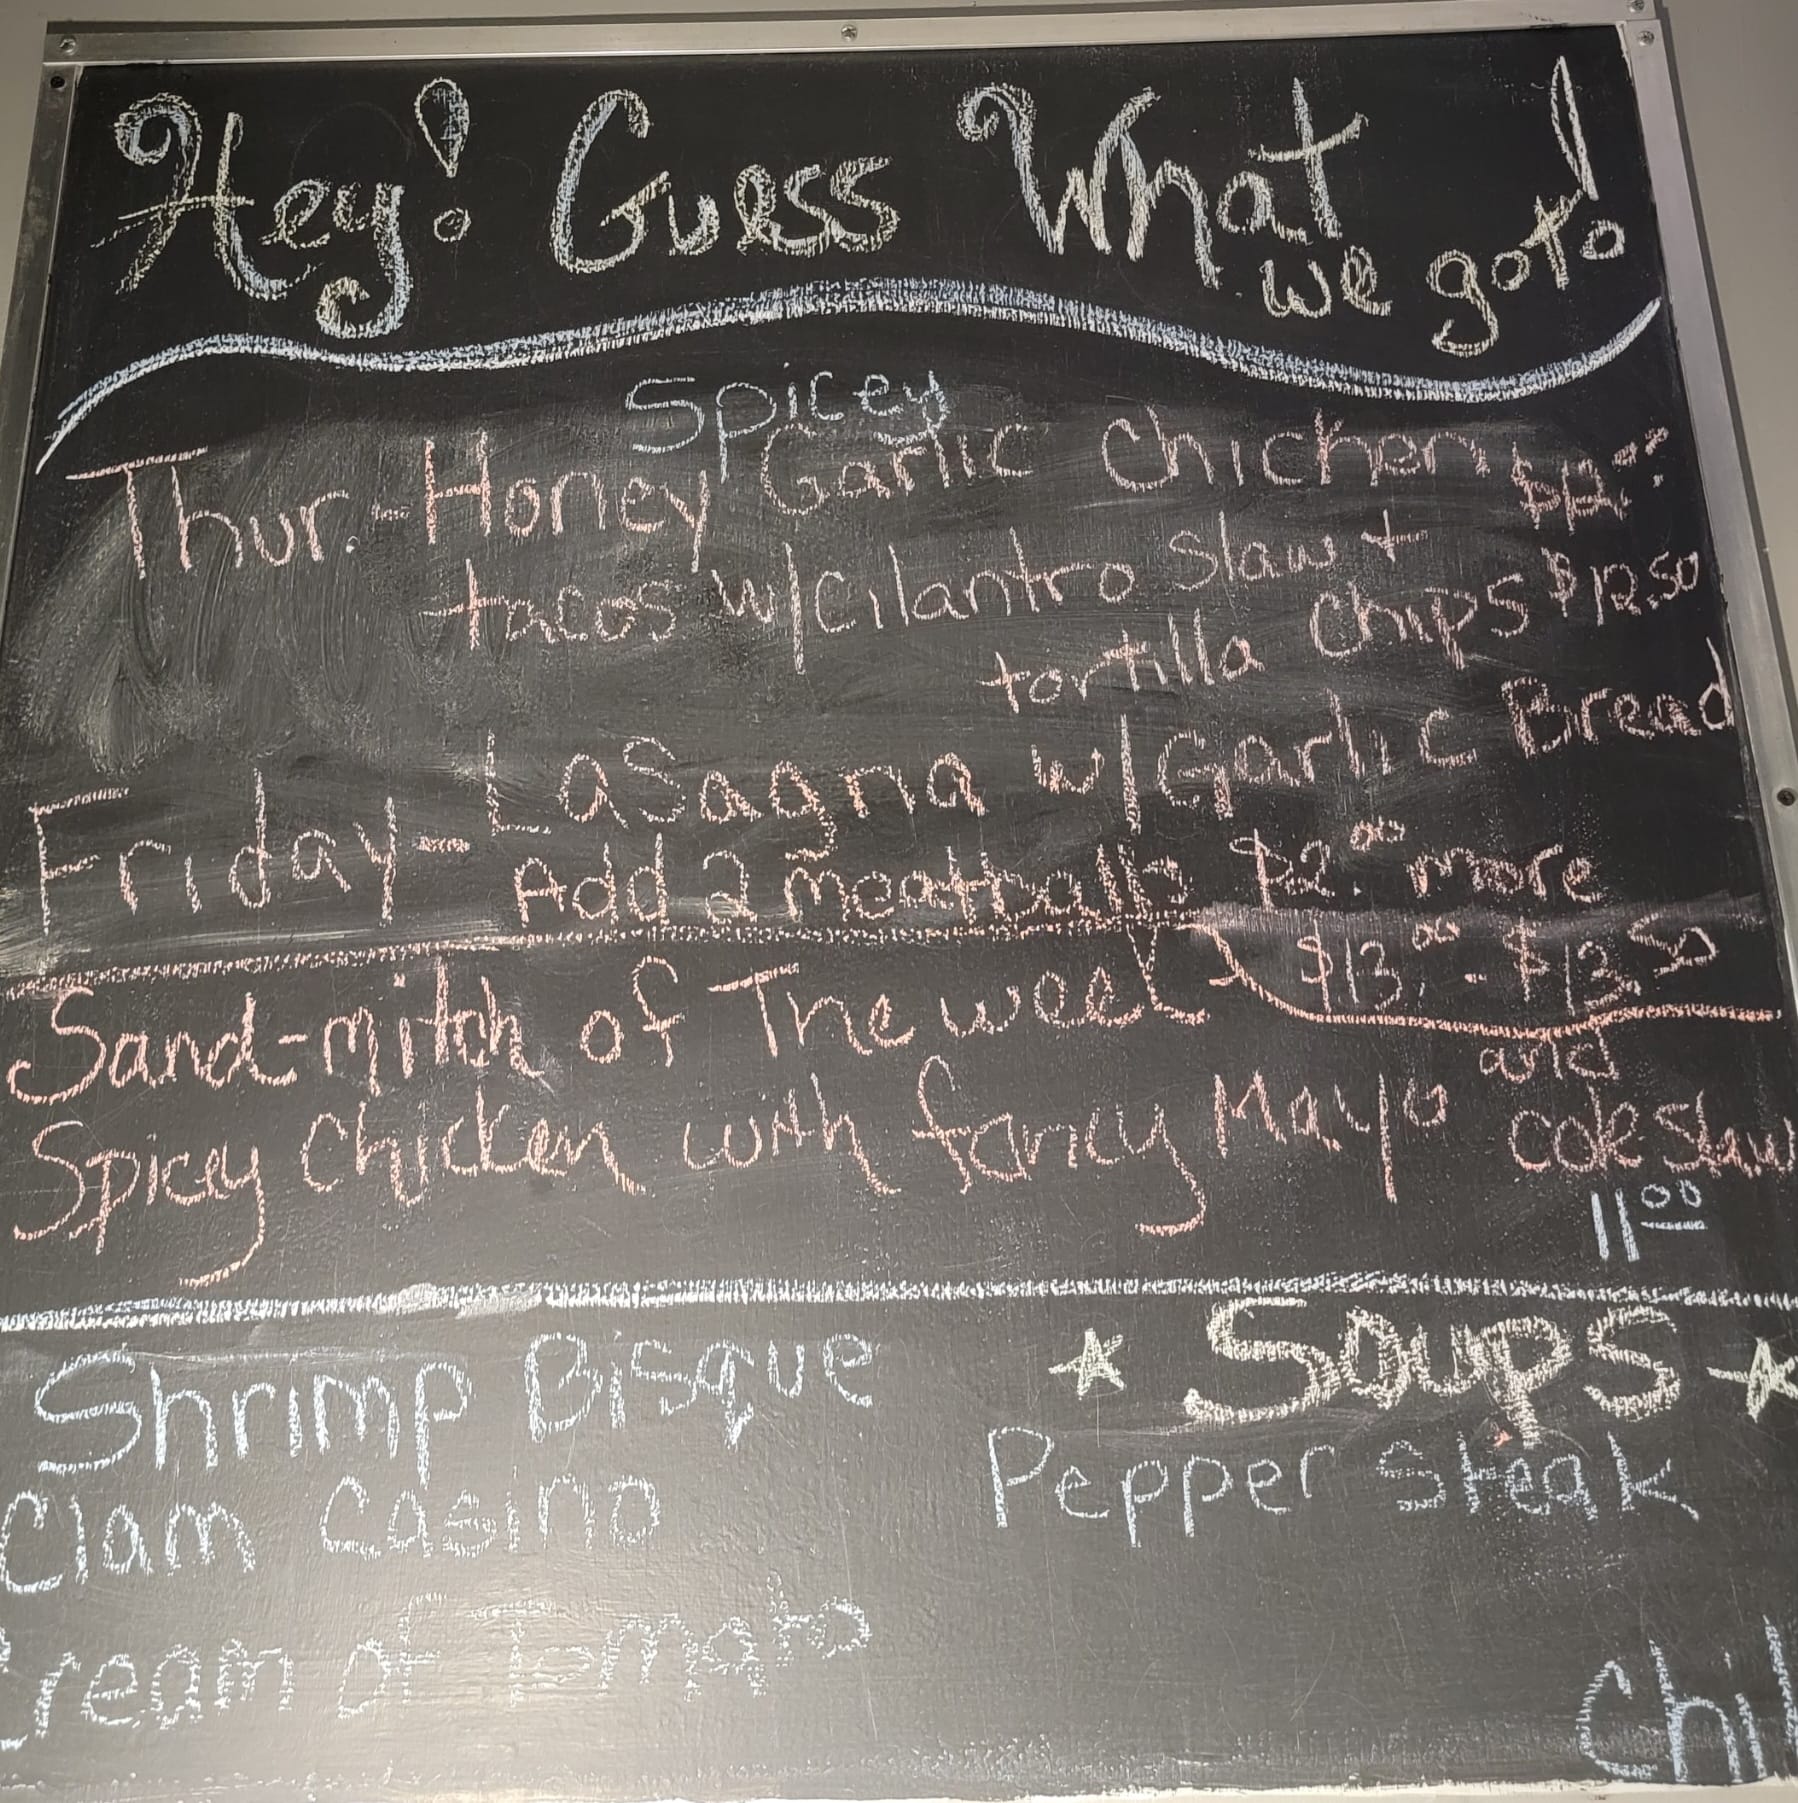 Hey! Guess What
we got!
Spicey
Thur.-Honey Garlic Chicken $12.00
tacos w/cilantro slaw +
tortilla chips $12.50
Friday-Lasagna w/Garlic Bread
Add 2 meatballs $2.00 more
$13.00 - $13.50
Sand-mitch of The week
Spicey Chicken with fancy Mayo and
Coleslaw
11.00
★ Soups ★
Shrimp Bisque
Pepper Steak
Clam Casino
Cream of Tomato
Chil